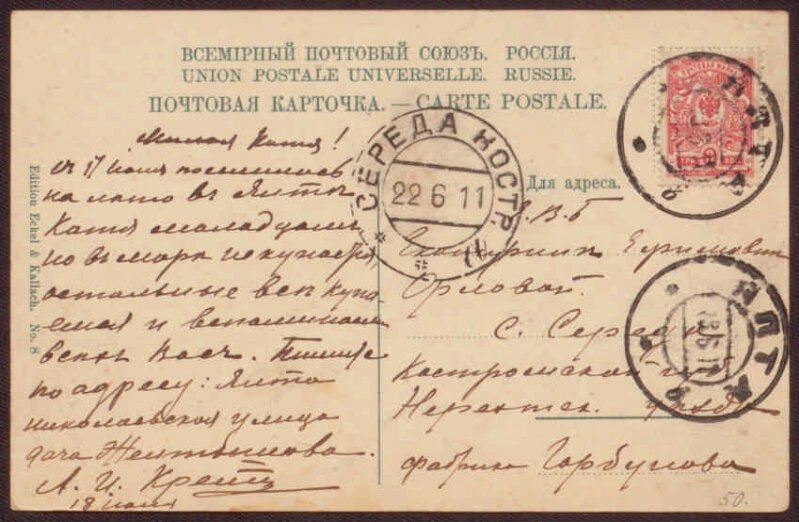 ВСЕМІРНЫЙ ПОЧТОВЫЙ СОЮЗЪ. РОССІЯ.
UNION POSTALE UNIVERSELLE. RUSSIE.
ПОЧТОВАЯ КАРТОЧКА. — CARTE POSTALE.
Милая Катя!
17 іюня поселились
на лето въ Ялте
Катя
но въ море не купается
остальные все купа-
емся и вспоминаем
Васъ. Пишите
по адресу: Ялта
николаевская улица
дача Желтышова.
А. И. Кретъ
18 іюня
Edition Eckel & Kallach. No. 8
СЕРЕДА КОСТР.
22 6 11
ЯЛТА
Для адреса.
Е.В.Б
Екатерине Ефимовне
Орловой.
с. Середа
Костромской губ
Нерехтск. уезда
фабрика Горбунова
ЯЛТА
18 6 11
50.